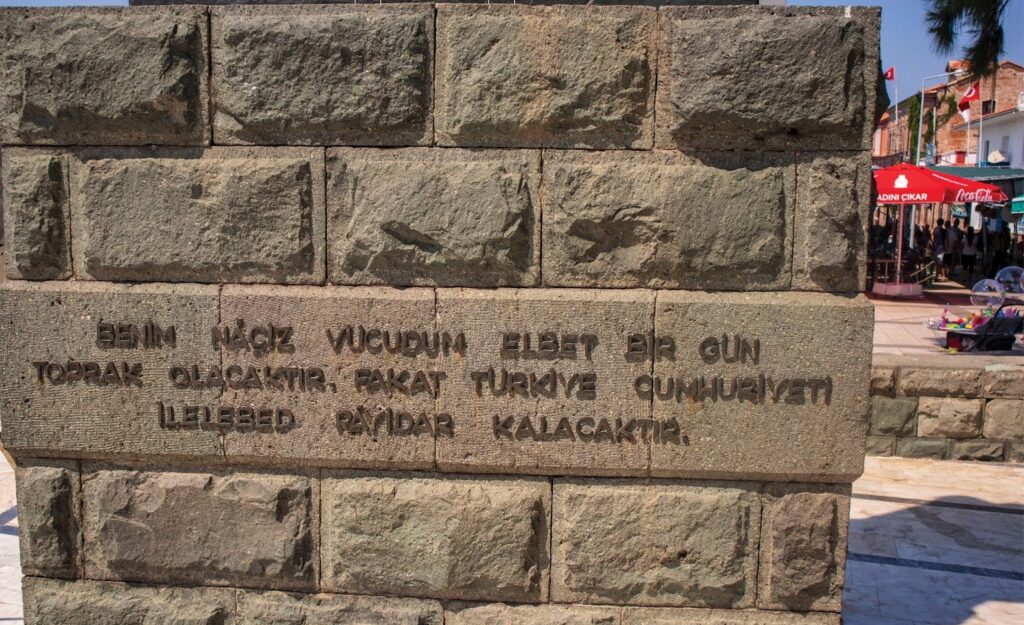 BENİM NÂÇİZ VÜCUDUM ELBET BİR GÜN
TOPRAK OLACAKTIR. FAKAT TÜRKİYE CUMHURİYETİ
İLELEBED PÂYİDAR KALACAKTIR.
ADINI ÇIKAR
Coca-Cola